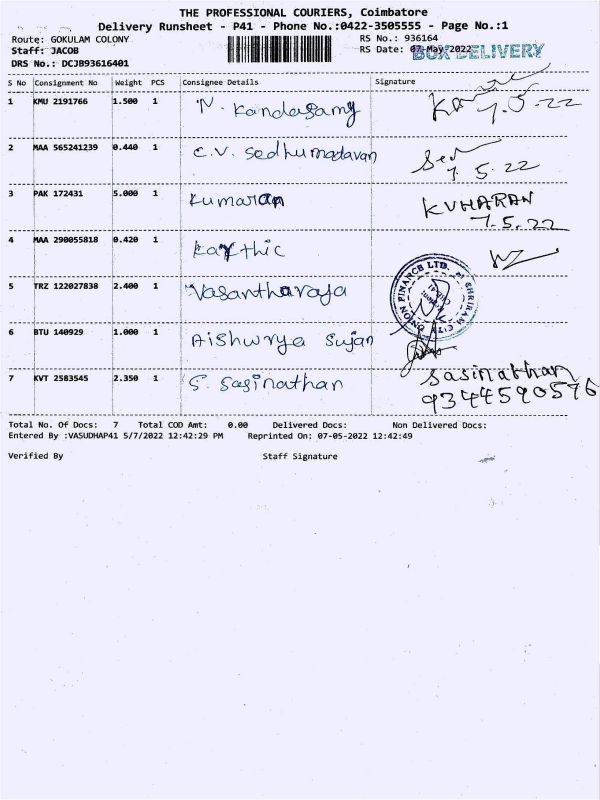 THE PROFESSIONAL COURIERS, Coimbatore
Delivery Runsheet - P41 - Phone No.:0422-3505555 - Page No.:1
Route: GOKULAM COLONY
Staff: JACOB
DRS No.: DCJB93616401
RS No.: 936164
RS Date: 07-May-2022
BOX DELIVERY
S No Consignment No Weight PCS Consignee Details Signature
1 KMU 2191766 1.500 1 N. Kandasamy
7.5.22
2 MAA 565241239 0.440 1 C.V. Sedhumadavan
7.5.22
3 PAK 172431 5.000 1 Kumaran KUMARAN
7.5.22
4 MAA 290055818 0.420 1 Karthic
5 TRZ 122027838 2.400 1 Vasantharaja
UNION FINANCE LTD. SHRIRAM CITY
6 BTU 140929 1.000 1 Aishwrya Sujan
7 KVT 2583545 2.350 1 S. Sasinathan Sasinathan
9344590596
Total No. Of Docs: 7 Total COD Amt: 0.00 Delivered Docs: Non Delivered Docs:
Entered By :VASUDHAP41 5/7/2022 12:42:29 PM Reprinted On: 07-05-2022 12:42:49
Verified By Staff Signature